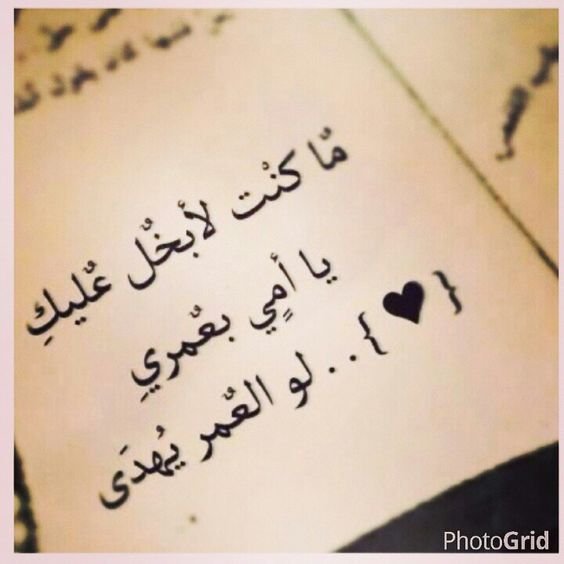 مٌا كنْت لأبخٌل عٌليكِ
يا أمٍي بعٌمريِ
{♥}..لو العٌمر يُهدَى
PhotoGrid